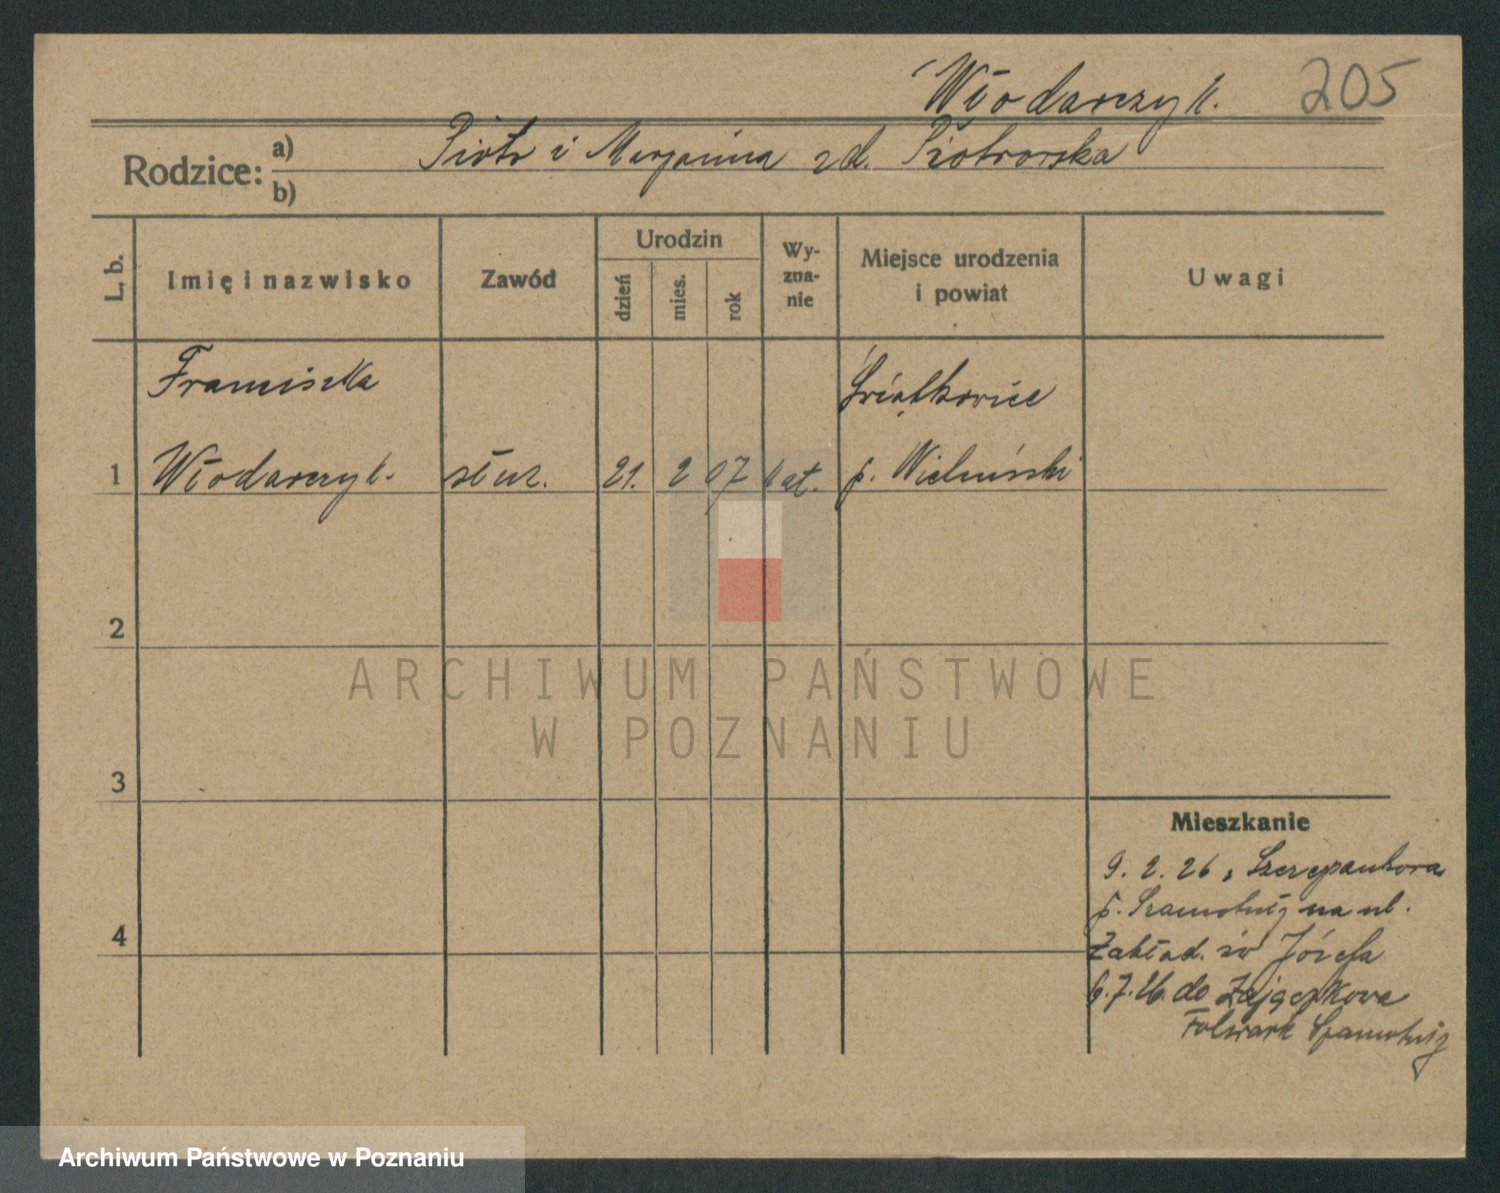 Włodarczyk. 205
Rodzice: a) Piotr i Marjanna zd. Piotrowska
b)
L. b. Imię i nazwisko Zawód Urodzin dzień mies. rok Wy-zna-nie Miejsce urodzenia i powiat Uwagi
Franciszka Świątkowice
1 Włodarczyk. służ. 21. 2 07 kat. p. Wieluński
2
ARCHIWUM PAŃSTWOWE
W POZNANIU
3
Mieszkanie
9. 2. 26 z Szczepankowa
p. Szamotuły na ul.
4
Zakład. św Józefa
6.7.26. do Zajączkowa
Folwark Szamotuły
Archiwum Państwowe w Poznaniu